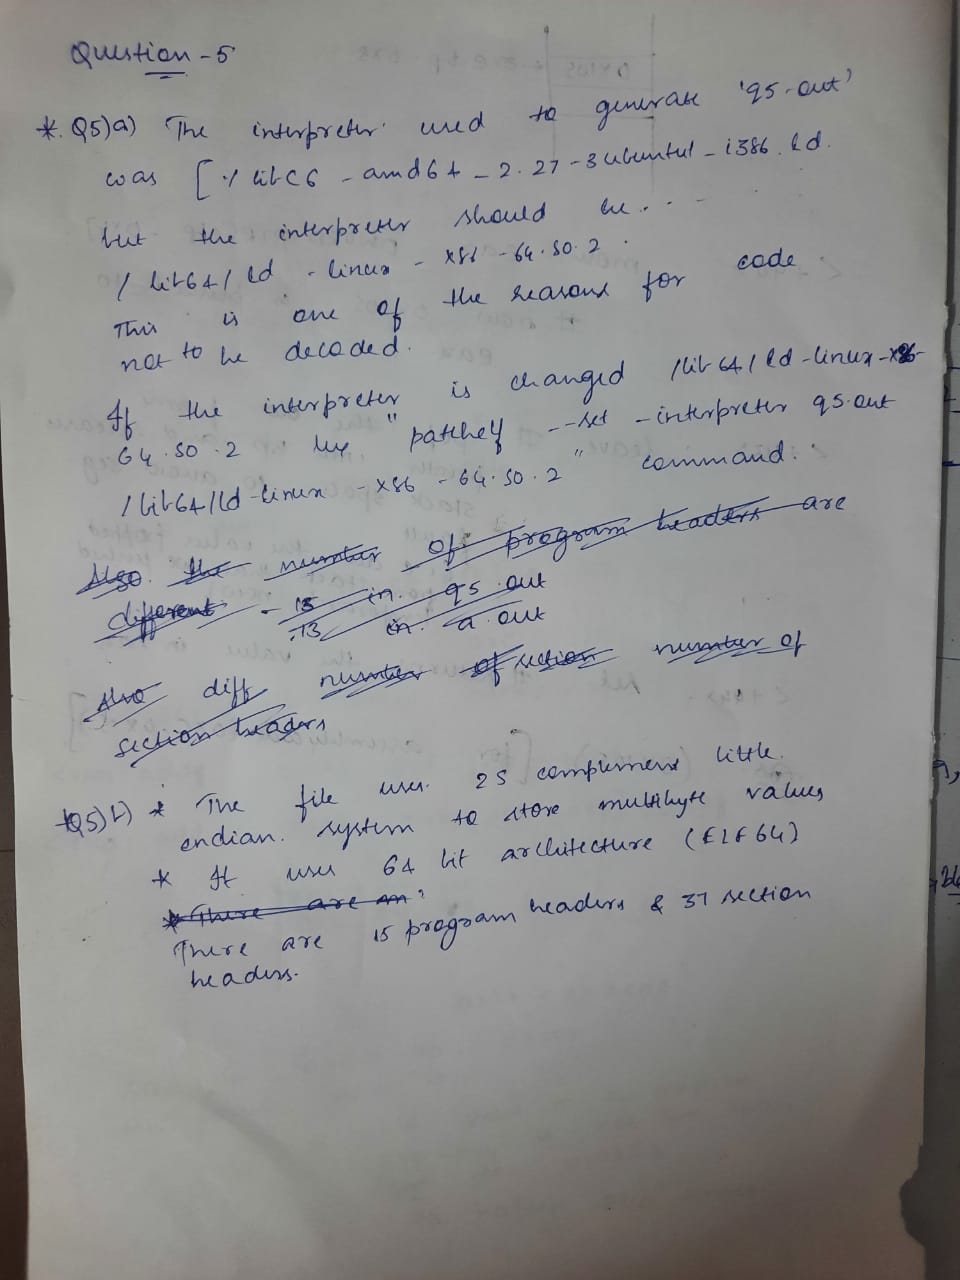 Question - 5
*. Q5)a) The interpreter used to generate 'q5.out'
was [./libc6 - amd64 - 2.27 - 3ubuntu1 - i386.ld.
but the interpreter should be...
/lib64/ld - linux - x86 - 64.so.2.
This is one of the reasons for code
not to be decoded.
If the interpreter is changed /lib64/ld-linux-x86-
64.so.2 by "patchelf --set - interpreter q5.out
/lib64/ld-linux - x86 - 64.so.2" command.
Also. the number of program headers are
different - 15 in. q5.out
-13 in. a.out
Also diff number of section number of
section headers
*Q5)b) * The file uses. 2s complement little.
endian. system to store multibyte values
* It uses 64 bit architecture (ELF64)
* There are
There are 15 program headers & 37 section
headers.